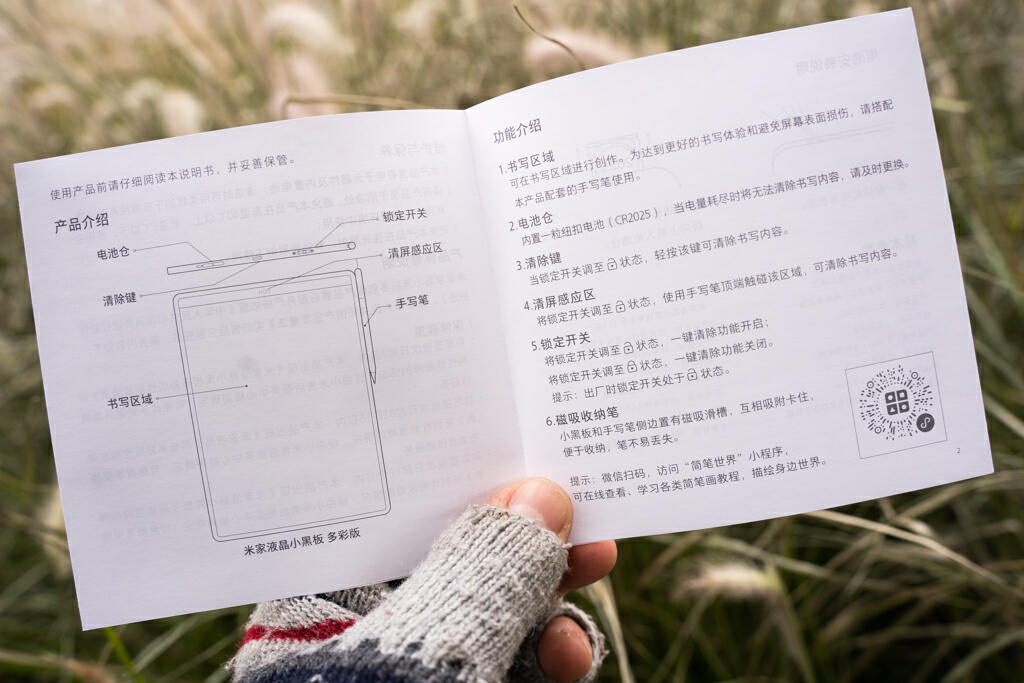 使用产品前请仔细阅读本说明书，并妥善保管。
产品介绍
锁定开关
电池仓
清屏感应区
清除键
手写笔
书写区域
米家液晶小黑板 多彩版
功能介绍
1.书写区域
可在书写区域进行创作。为达到更好的书写体验和避免屏幕表面损伤，请搭配
本产品配套的手写笔使用。
2.电池仓
内置一粒纽扣电池（CR2025），当电量耗尽时将无法清除书写内容，请及时更换。
3.清除键
当锁定开关调至状态，轻按该键可清除书写内容。
4.清屏感应区
将锁定开关调至状态，使用手写笔顶端触碰该区域，可清除书写内容。
5.锁定开关
将锁定开关调至状态，一键清除功能开启；
将锁定开关调至状态，一键清除功能关闭。
提示：出厂时锁定开关处于状态。
6.磁吸收纳笔
小黑板和手写笔侧边设置有磁吸滑槽，互相吸附卡住，
便于收纳，笔不易丢失。
提示：微信扫码，访问“简笔世界”小程序，
可在线查看、学习各类简笔画教程，描绘身边世界。
2